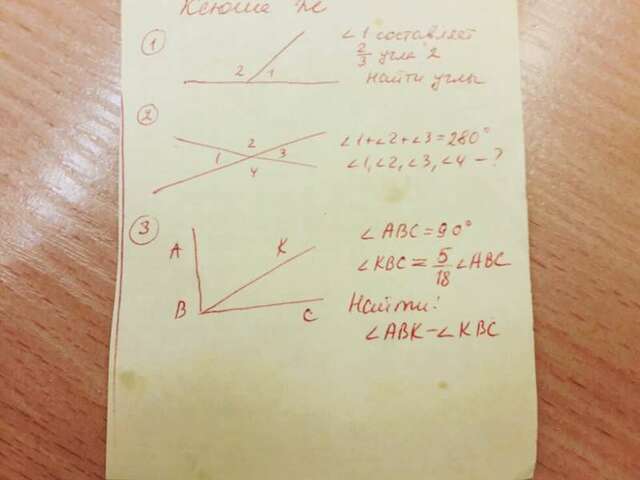 Ксюша ДС
① ∠1 составляет
2/3 угла 2
2 1 найти углы
②
2
1 3
4
∠1+∠2+∠3=280°
∠1,∠2,∠3,∠4 – ?
③
A K
B C
∠ABC=90°
∠KBC=5/18 ∠ABC
Найти:
∠ABK–∠KBC